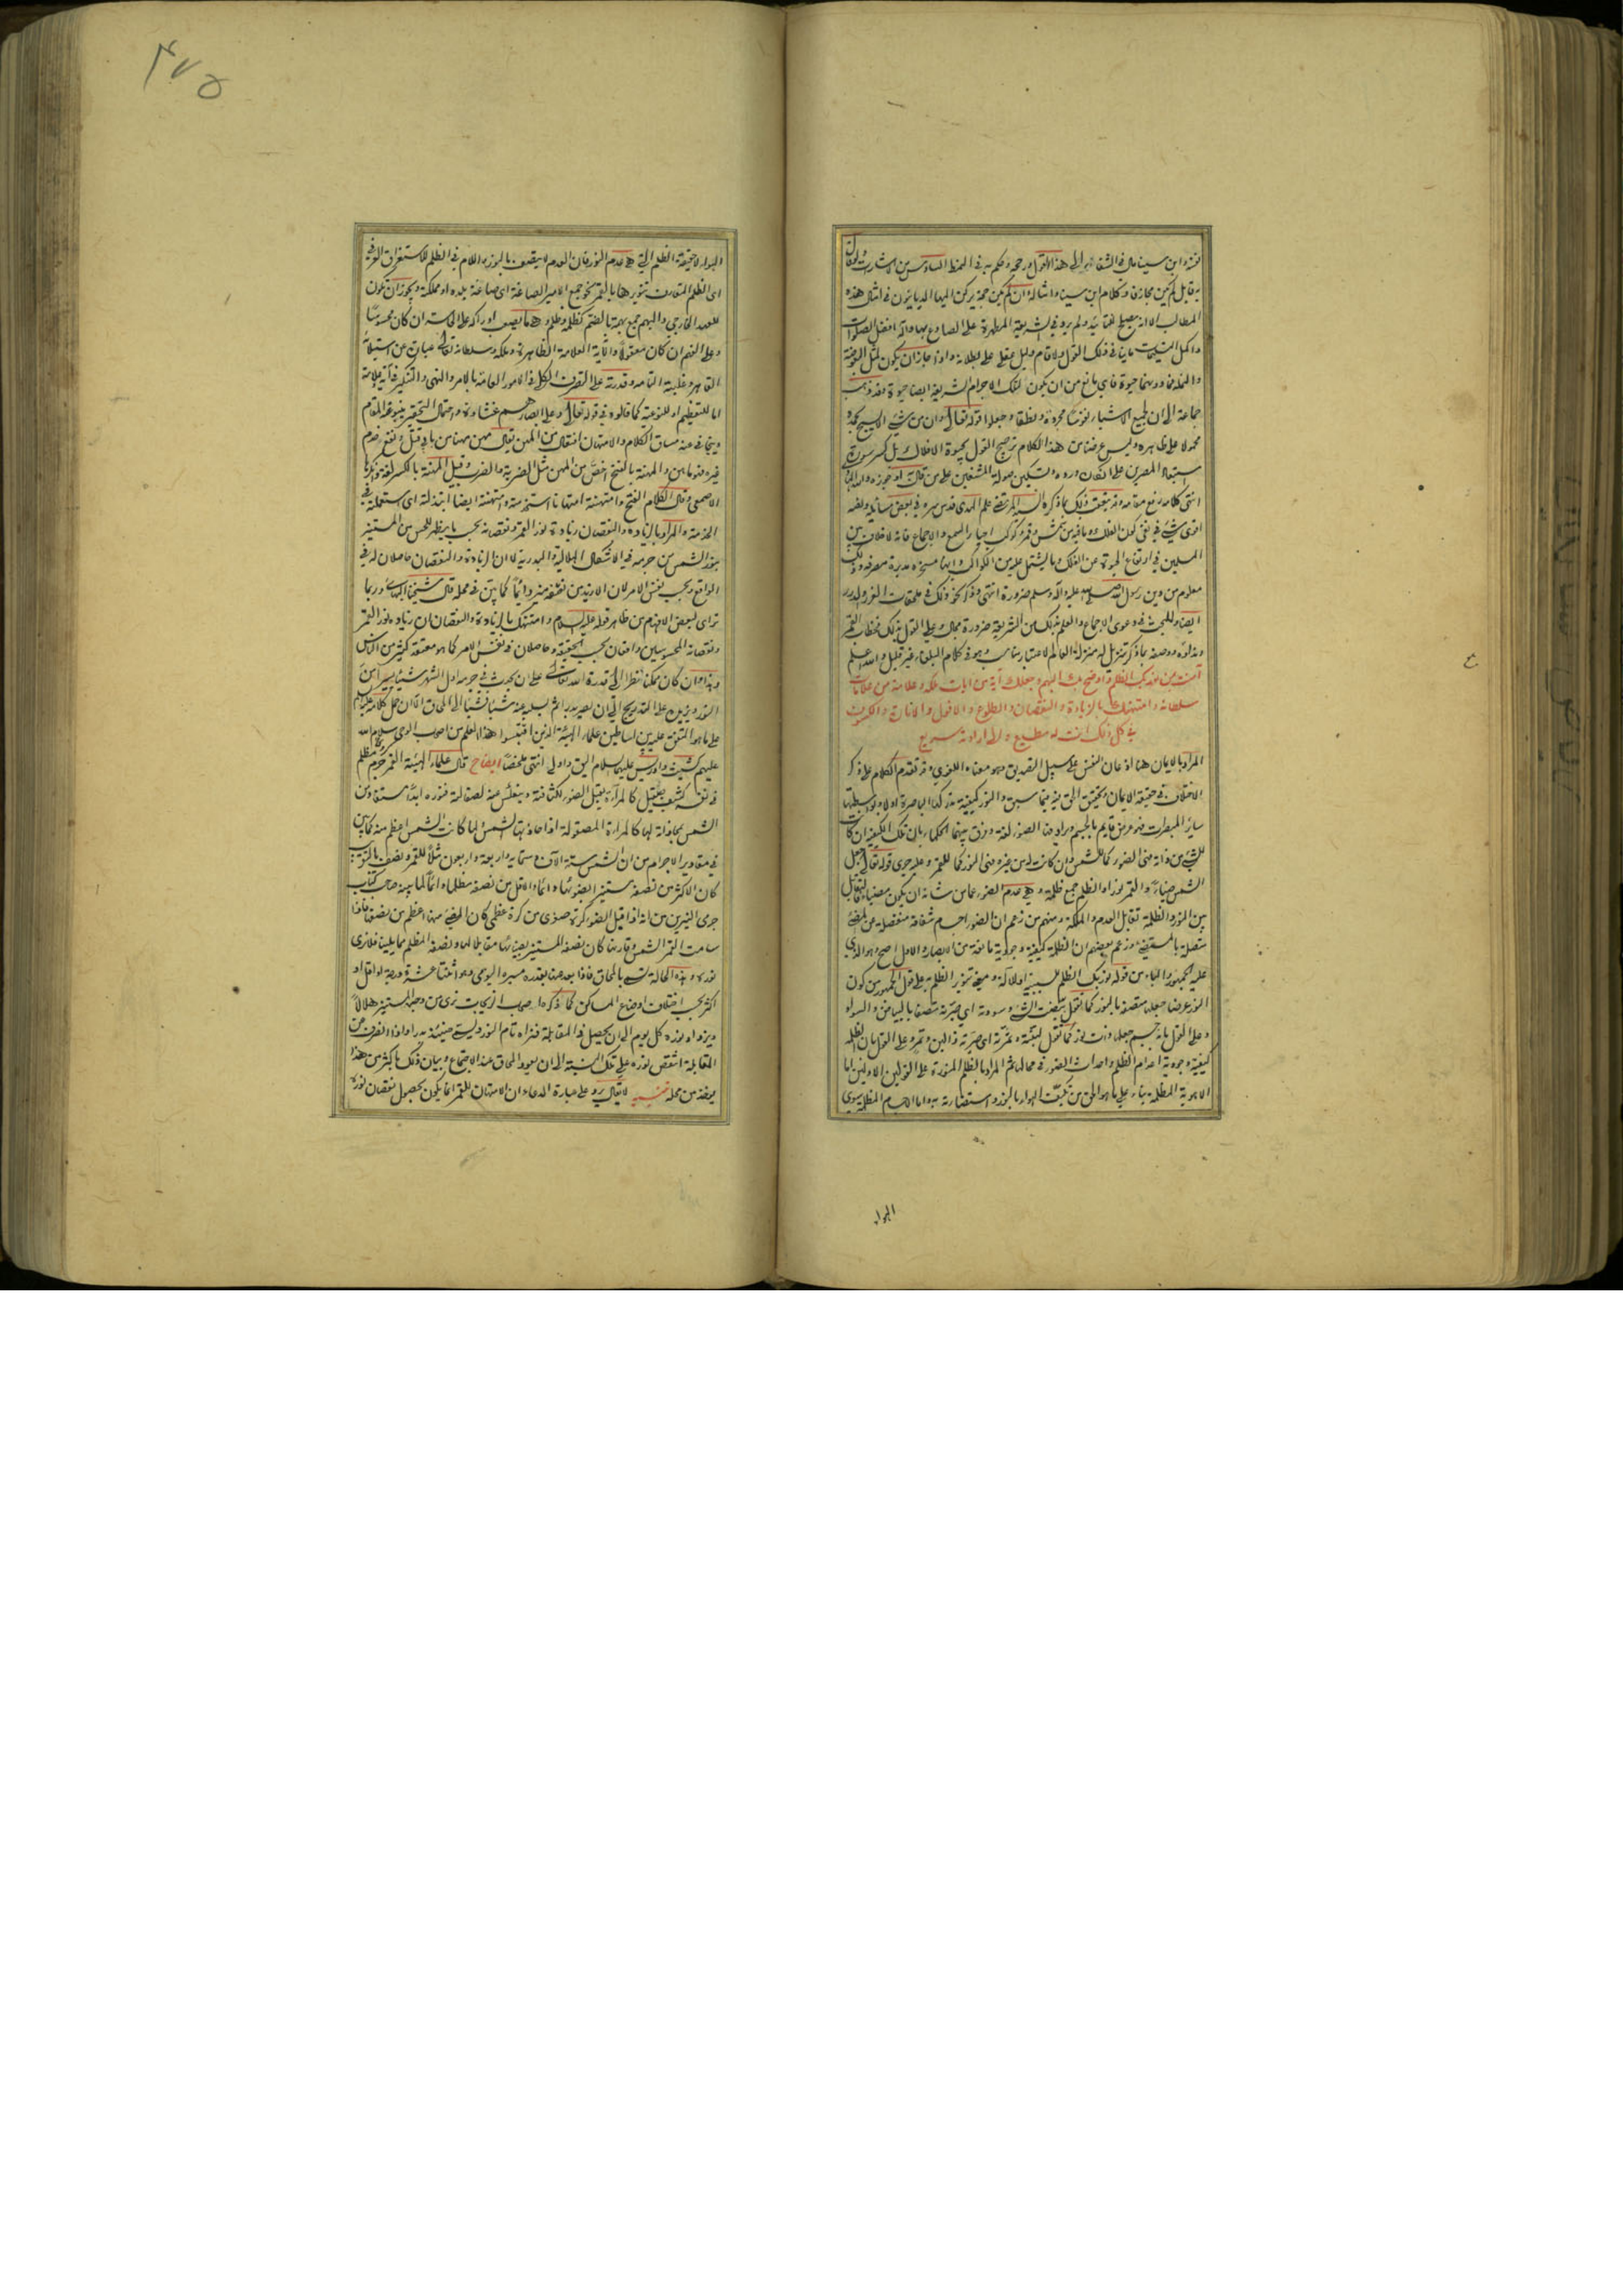 فيه وابن سينا مال في الشفاء الى هذا القول ورجحه وحكم به في النمط السادس من الاشارات ولو قال
به قائل لم يكن مجازفا وكلام ابن سينا وامثاله وان لم يكن حجة يركن اليها الديانيون في امثال هذه
المطالب الا انه يصلح للتأييد ولم يرد في الشريعة المطهرة على الصادع بها وآله افضل الصلوات
واكمل التسليمات ما ينافي ذلك القول ولا قام دليل عقلي على بطلانه واذا جاز ان يكون لمثل البعوضة
والنملة فما دونهما حيوة فاي مانع من ان يكون لتلك الاجرام الشريفة ايضا حيوة وقد ذهب
جماعة الى ان لجميع الاشياء نفوسا مجردة ونطقا وجعلوا قوله تعالى وان من شئ الا يسبح بحمده
محمولا على ظاهره وليس غرضنا من هذا الكلام ترجيح القول بحيوة الافلاك بل كسر سورة
استبعاد المصرين على انكاره ورده وتسكين صولة المشنعين على من قال به او جوزه والله الهادي
انتهى كلامه رفع مقامه وقد تعقب ذلك بما ذكره السيد المرتضى علم الهدى قدس سره في بعض مسائله ولفظه
اقوى شئ في نفي كون الفلك وما فيه من شمس وقمر وكوكب احياء السمع والاجماع فانه لا خلاف بين
المسلمين في ارتفاع الحيوة عن الفلك وما يشتمل عليه من الكواكب وانها مسخرة مدبرة مصرفة وذلك
معلوم من دين رسول الله صلى الله عليه وآله وسلم ضرورة انتهى وذكر نحو ذلك في ملحقات الغرر والدرر
ايضا وللبحث في دعوى الاجماع والعلم بذلك من الشريعة ضرورة مجال وعلى القول بذلك فخطاب القمر
ونداؤه ووصفه بما ذكر تنزيل له منزلة العالم لاعتبار مناسب وهو في كلام البلغاء غير قليل والله اعلم
آمنت بمن نور بك الظلم واوضح بك البهم وجعلك آية من آيات ملكه وعلامة من علامات
سلطانه وامتهنك بالزيادة والنقصان والطلوع والافول والانارة والكسوف
في كل ذلك انت له مطيع والى ارادته سريع
المراد بالايمان هنا اذعان النفس على سبيل التصديق وهو معناه اللغوي وقد تقدم الكلام على ذكر
الاختلاف في حقيقة الايمان وتحقيق الحق فيه فيما سبق والنور كيفية تدركها الباصرة اولا وبواسطتها
سائر المبصرات فهو عرض قايم بالجسم ويرادفها الضوء لغة وفرق بينهما الحكماء بان تلك الكيفية ان كانت
للشئ من ذاته فهي الضوء كما للشمس وان كانت له من غيره فهي النور كما للقمر وعليه جرى قوله تعالى جعل
الشمس ضياء والقمر نورا والظلم جمع ظلمة وهي عدم الضوء عما من شانه ان يكون مضيئا فالتقابل
بين النور والظلمة تقابل العدم والملكة ومنهم من زعم ان الضوء اجسام شفافة منفصلة من المضئ
متصلة بالمستضئ وزعم بعضهم ان الظلمة كيفية وجودية مانعة من الابصار والاول اصح وهو الذي
عليه الجمهور والباء من قوله نور بك الظلم للسببية او للآلة ومعنى تنوير الظلم به على قول الجمهور من كون
النور عرضا جعلها متصفة بالنور كما تقول بيضت الشئ وسودته اي صيرته متصفا بالبياض والسواد
وعلى القول بانه جسم جعلها ذات نور كما تقول لبنته وتمرته اي صيرته ذا لبن وتمر وعلى القول بان الظلمة
كيفية وجودية اعدام الظلم واحداث الضوء في محالها ثم المراد بالظلم المنورة على القولين الاولين اما
الاهوية المظلمة بناء على ما هو الحق من تكيف الهواء بالنور واستضاءته به واما الاجسام المظلمة سوى
الهواء
الهواء لا حقيقة الظلم التي هي عدم النور فان العدم لا يتصف بالنور واللام في الظلم للاستغراق العرفي
اي الظلم المتعارف تنويرها بالقمر نحو جمع الامير الصاغة اي صاغة بلده او مملكته ويجوز ان تكون
للعهد الخارجي والبهم جمع بهمة بالضم كظلمة وظلم وهي ما يصعب ادراكه على الحاسة ان كان محسوسا
وعلى الفهم ان كان معقولا والآية العلامة الظاهرة وملكه وسلطانه تعالى عبارة عن استيلائه
القاهر وغلبته التامة وقدرته على التصرف الكلي في الامور العامة بالامر والنهي والتنكير في آية وعلامة
اما للتعظيم او للنوعية كما قالوه في قوله تعالى وعلى ابصارهم غشاوة واحتمال التحقير ينبو عنه المقام
ويتجافى عنه مساق الكلام والامتهان افتعال من المهن يقال مهن مهنا من بابي قتل ونفع خدم
غيره فهو ماهن والمهنة بالفتح اخص من المهن مثل الضربة والضرب وقيل المهنة بالكسر لغة وانكرها
الاصمعي وقال الكلام الفتح وامتهنته امتهانا استخدمته وامتهنته ايضا ابتذلته اي استعملته في
الخدمة والمراد بالزيادة والنقصان زيادة نور القمر ونقصانه بحسب ما يظهر للحس من المستنير
بنور الشمس من جرمه في الاشكال الهلالية والبدرية لا ان الزيادة والنقصان حاصلان له في
الواقع وبحسب نفس الامر لان الازيد من نصفه منير دائما كما بين في محله قال شيخنا البهائي وربما
ترائى لبعض الافهام من ظاهر قوله عليه السلام وامتهنك بالزيادة والنقصان ان زيادة نور القمر
ونقصانه المحسوسين واقعان بحسب الحقيقة وحاصلان في نفس الامر كما هو معتقد كثير من الناس
وهذا وان كان ممكنا نظرا الى قدرة الله تعالى على ان يحدث في جرمه اول الشهر شيئا يسيرا من
النور ويزيده على التدريج الى ان يصير بدرا ثم يسلبه عنه شيئا فشيئا الى المحاق الا ان حمل كلامه عليه السلام
على ما هو المتفق عليه بين اساطين علماء الهيئة الذين اقتبسوا هذا العلم من اصحاب الوحي سلام الله
عليهم كشيث وادريس عليهما السلام اليق واولى انتهى ملخصا ايضاح قال علماء الهيئة القمر جرم مظلم
في نفسه كثيف صقيل كالمرآة يقبل الضوء لكثافته وينعكس عنه لصقالته فنوره ابدا مستفاد من
الشمس بمحاذاته لها كالمرآة المصقولة اذا حاذيتها الشمس ولما كانت الشمس اعظم منه كما بين
في مقادير الاجرام من ان الشمس ستة الاف وستمايه واربعة واربعون مثلا للقمر ونصف بالتقريب
كان الاكثر من نصفه مستنيرا بضوئها دائما والاقل من نصفه مظلما دائما لما بينه صاحب كتاب
جرمي النيرين من انه اذا قبل الضوء كرة صغرى من كرة عظمى كان المضئ منها اعظم من نصفها فاذا
سامت القمر الشمس وقارنها كان نصفه المستنير بضيائها مقابلا لها ونصفه المظلم مما يلينا فلا نرى
نوره وهذه الحالة تسمى بالمحاق فاذا بعد عنها بقدر مسيره اليومي وهو اثنتا عشرة درجة او اقل او
اكثر بحسب اختلاف اوضاع المساكن كما ذكره اصحاب الزيجات نرى من وجهه المستنير هلالا
ويزداد نوره كل يوم الى ان يحصل في المقابلة فنراه تام النور وليسمى حينئذ بدرا واذا انصرف عن
المقابلة انتقص نوره على تلك النسبة الى ان يعود المحاق عند الاجتماع وبيان ذلك باكثر من هذا
يؤخذ من محله تنبيه لا يقال يرد على عبارة الدعاء ان الامتهان للقمر انما يكون بحصول نقصان نوره